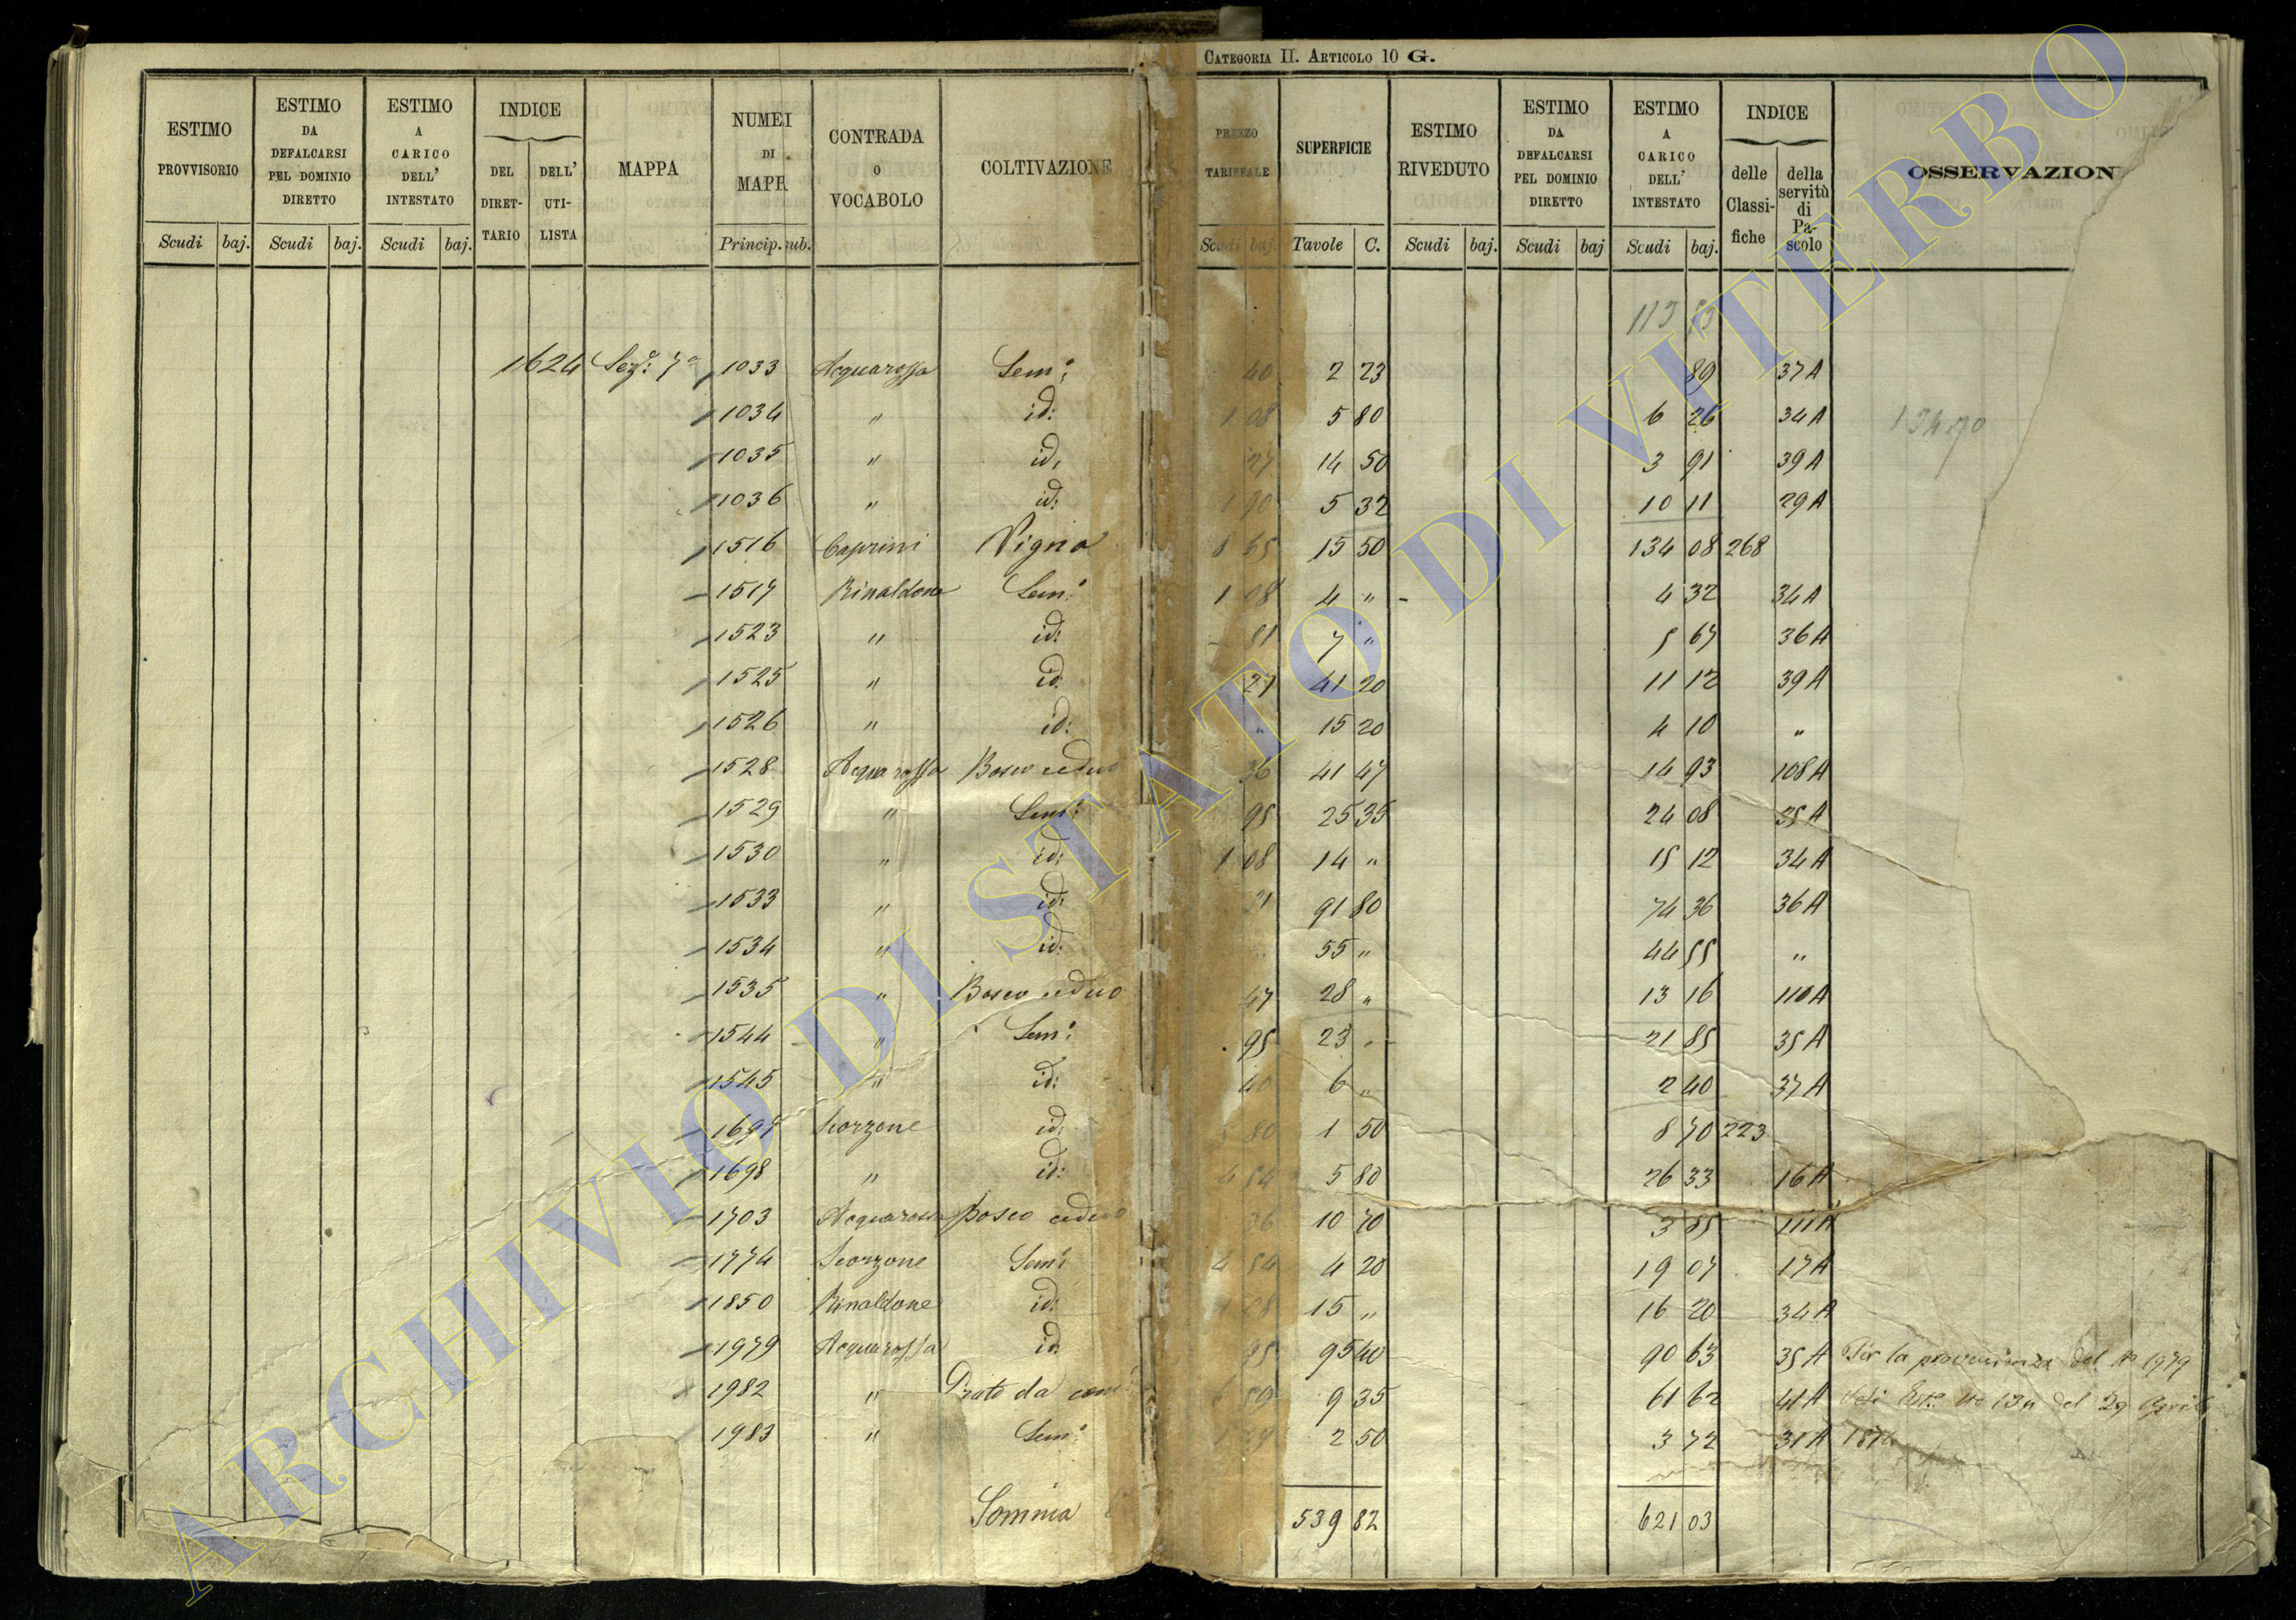 CATEGORIA II. ARTICOLO 10 G.
ESTIMO PROVVISORIO | ESTIMO DA DEFALCARSI PEL DOMINIO DIRETTO | ESTIMO A CARICO DELL' INTESTATO | INDICE DEL DIRETTARIO | DELL' UTILISTA | MAPPA | NUMEI DI MAPP | CONTRADA O VOCABOLO | COLTIVAZIONE | PREZZO TARIFFALE | SUPERFICIE | ESTIMO RIVEDUTO | ESTIMO DA DEFALCARSI PEL DOMINIO DIRETTO | ESTIMO A CARICO DELL' INTESTATO | INDICE delle Classifiche | della servitù di Pascolo | OSSERVAZION
Scudi baj. Scudi baj. Scudi baj. Princip. sub. Scudi baj. Tavole C. Scudi baj. Scudi baj Scudi baj.
113
1624 Sez: 7a 1033 Acquarossa Sem: 40 2 23 89 37A
1034 " id: 1 08 5 80 6 26 34A
1035 " id: 27 14 50 3 91 39A
1036 " id: 1 90 5 32 10 11 29A
1516 Caprini Vigna 8 65 15 50 134 08 268
1517 Rinaldone Sem: 1 08 4 " 4 32 34A
1523 " id: 81 7 " 5 67 36A
1525 " id 27 41 20 11 12 39A
1526 " id: " 15 20 4 10 "
1528 Acquarossa Bosco ceduo 36 41 47 14 93 108A
1529 " Sem: 95 25 35 24 08 35A
1530 " id: 1 08 14 " 15 12 34A
1533 " id: 91 80 74 36 36A
1534 " id: " 55 " 44 55 "
1535 " Bosco ceduo 47 28 " 13 16 110A
1544 " Sem: 95 23 " 21 85 35A
1545 " id: 40 6 " 2 40 37A
1697 Scorzone id: 5 80 1 50 8 70 223
1698 " id: 4 54 5 80 26 33 16A
1703 Acquarossa Bosco ceduo 36 10 70 3 85 111A
1774 Scorzone Sem: 4 54 4 20 19 07 17A
1850 Rinaldone id: 1 08 15 " 16 20 34A
1979 Acquarossa id 95 95 40 90 63 35A Per la provenienza del No 1979
1982 " Prato da 6 59 9 35 61 62 41A Vedi del 29 Aprile
1983 " Sem: 2 50 3 72 31A
Somma 539 82 621 03
ARCHIVIO DI STATO DI VITERBO